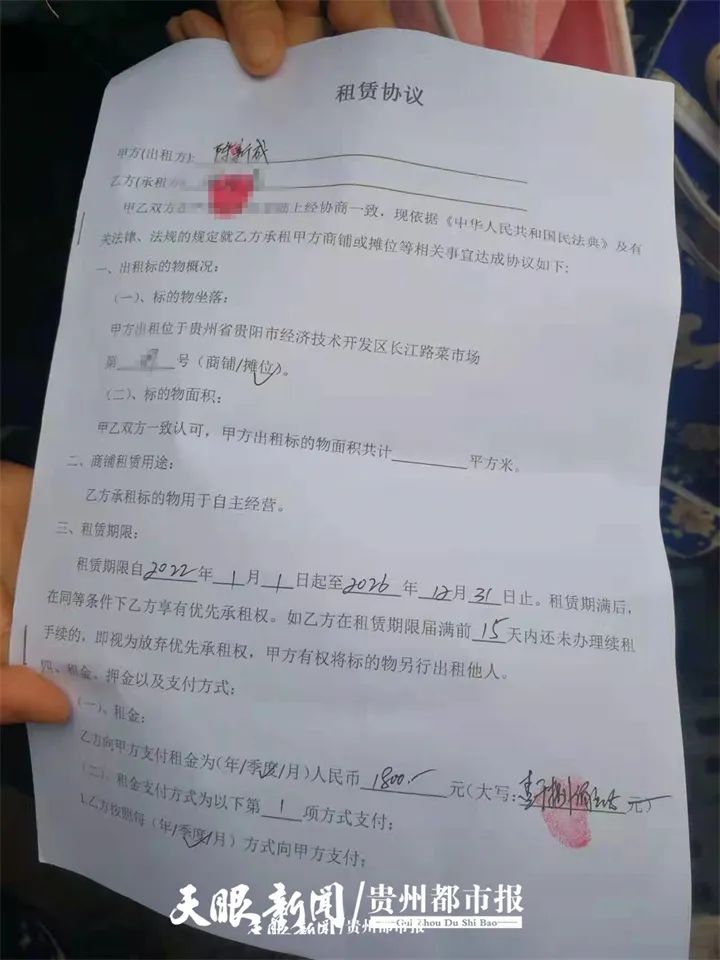 租赁协议
甲方(出租方):
乙方(承租方
甲乙双方 上经协商一致，现依据《中华人民共和国民法典》及有
关法律、法规的规定就乙方承租甲方商铺或摊位等相关事宜达成协议如下:
一、出租标的物概况:
(一)、标的物坐落:
甲方出租位于贵州省贵阳市经济技术开发区长江路菜市场
第 号（商铺/摊位）。
(二)、标的物面积:
甲乙双方一致认可，甲方出租标的物面积共计______平方米。
二、商铺租赁用途:
乙方承租标的物用于自主经营。
三、租赁期限:
租赁期限自2022年1月1日起至2026年12月31日止。租赁期满后,
在同等条件下乙方享有优先承租权。如乙方在租赁期限届满前15天内还未办理续租
手续的，即视为放弃优先承租权，甲方有权将标的物另行出租他人。
四、租金、押金以及支付方式;
(一)、租金:
乙方向甲方支付租金为(年/季度/月)人民币1800.-元(大写: 元)
(二)、租金支付方式为以下第1项方式支付;
1.乙方按照每（年/季度/月）方式向甲方支付;
天眼新闻/贵州都市报
Gui Zhou Du Shi Bao
天眼新闻/贵州都市报